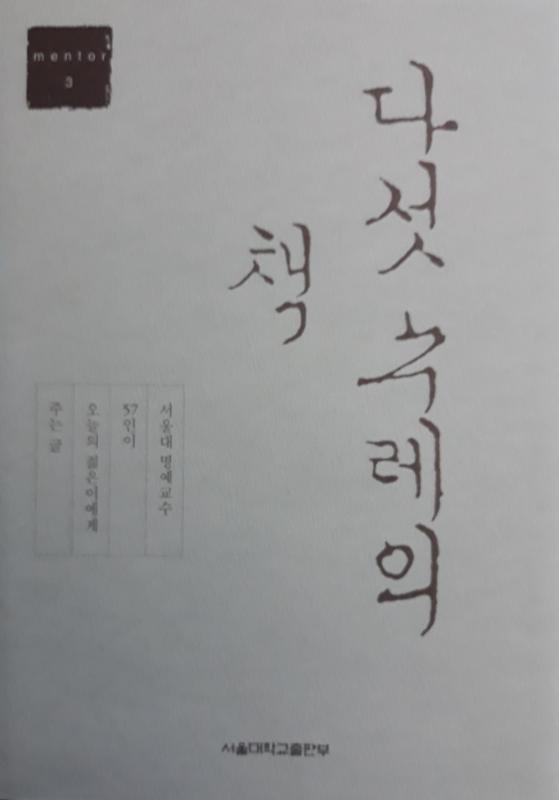 mentor
3
다섯 수레의
책
서울대 명예교수
57인이
오늘의 젊은이에게
주는 글
서울대학교출판부